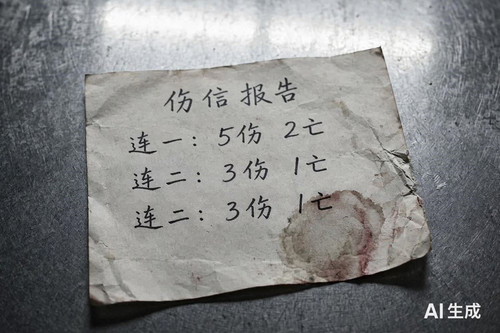 伤信报告
连一：5伤 2亡
连二：3伤 1亡
连二：3伤 1亡
AI生成